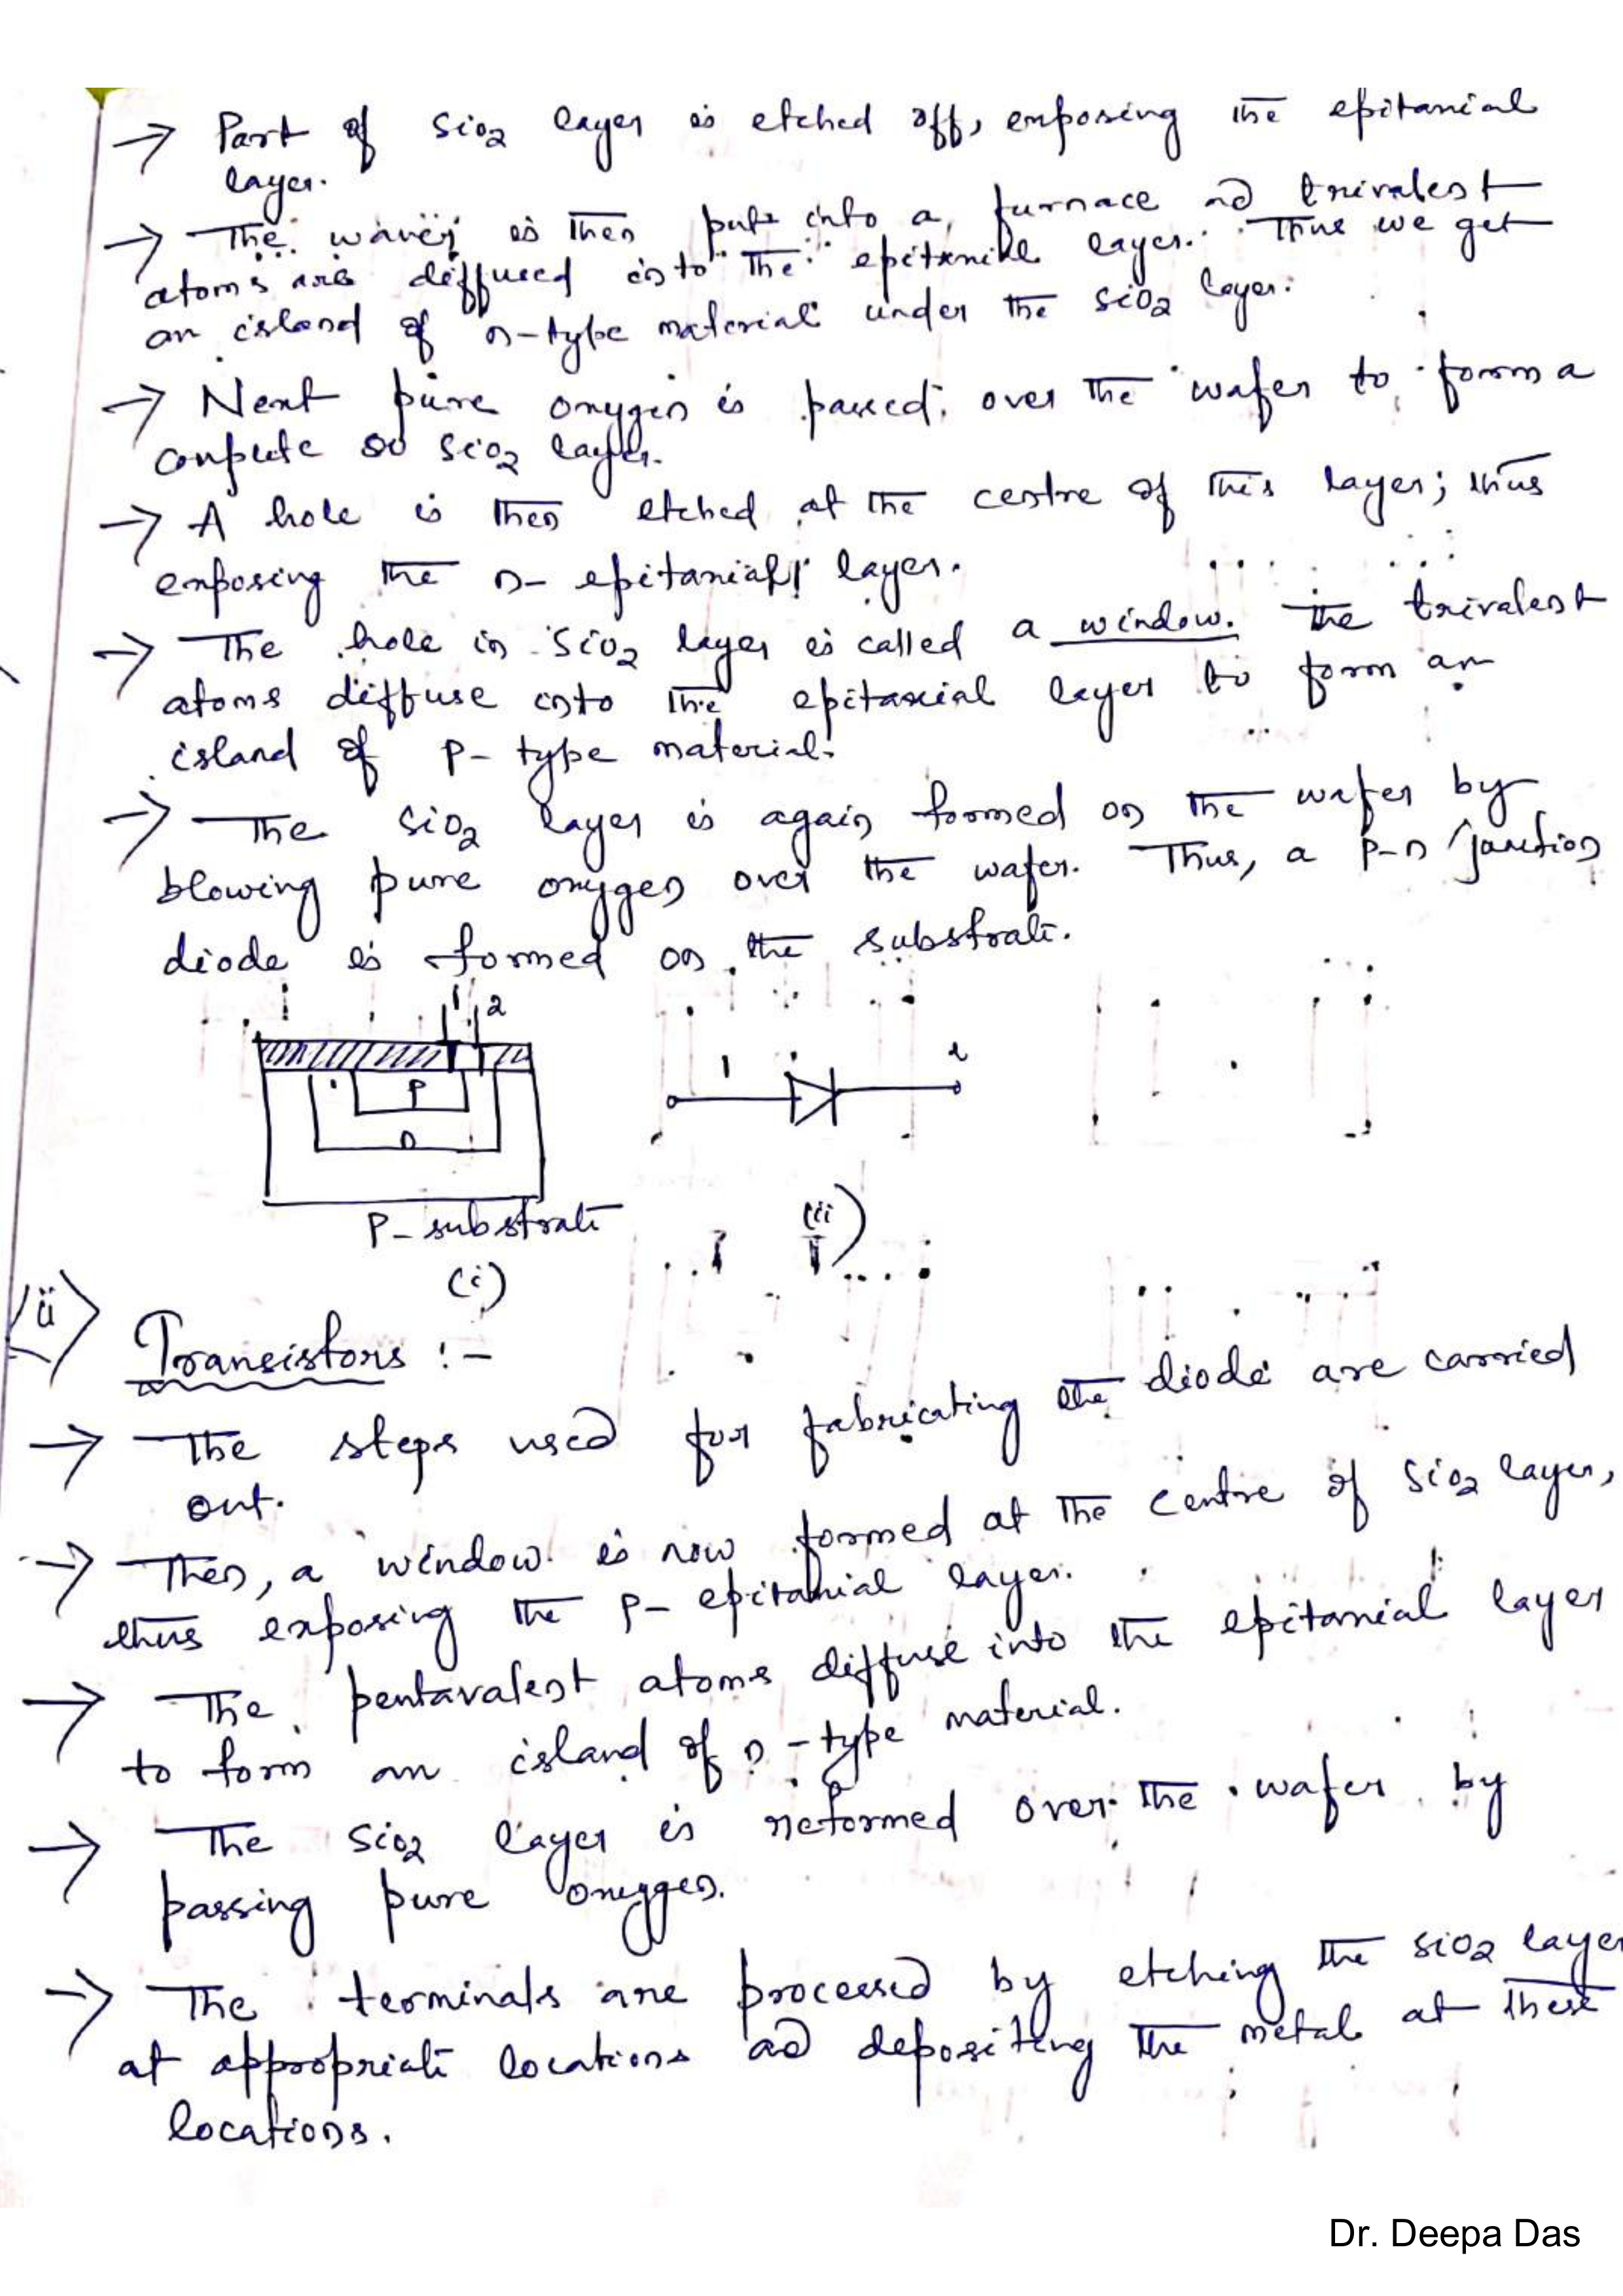 → Part of SiO2 layer is etched off, exposing the epitaxial
layer.
→ The wafer is then put into a furnace and trivalent
atoms are diffused into the epitaxial layer. Thus we get
an island of n-type material under the SiO2 layer.
→ Next pure oxygen is passed over the wafer to form a
complete SiO2 layer.
→ A hole is then etched at the centre of this layer; thus
exposing the n- epitaxial layer.
→ The hole in SiO2 layer is called a window. The trivalent
atoms diffuse into the epitaxial layer to form an
island of P- type material.
→ The SiO2 layer is again formed on the wafer by
blowing pure oxygen over the wafer. Thus, a P-n junction
diode is formed on the substrate.
1 2
P
n
P-substrate
(i)
1 2
(ii)
ii
Transistors :-
→ The steps used for fabricating the diode are carried
out.
→ Then, a window is now formed at the centre of SiO2 layer,
thus exposing the P- epitaxial layer.
→ The pentavalent atoms diffuse into the epitaxial layer
to form an island of n-type material.
→ The SiO2 layer is reformed over the wafer by
passing pure oxygen.
→ The terminals are processed by etching the SiO2 layer
at appropriate locations and depositing the metal at these
locations.
Dr. Deepa Das